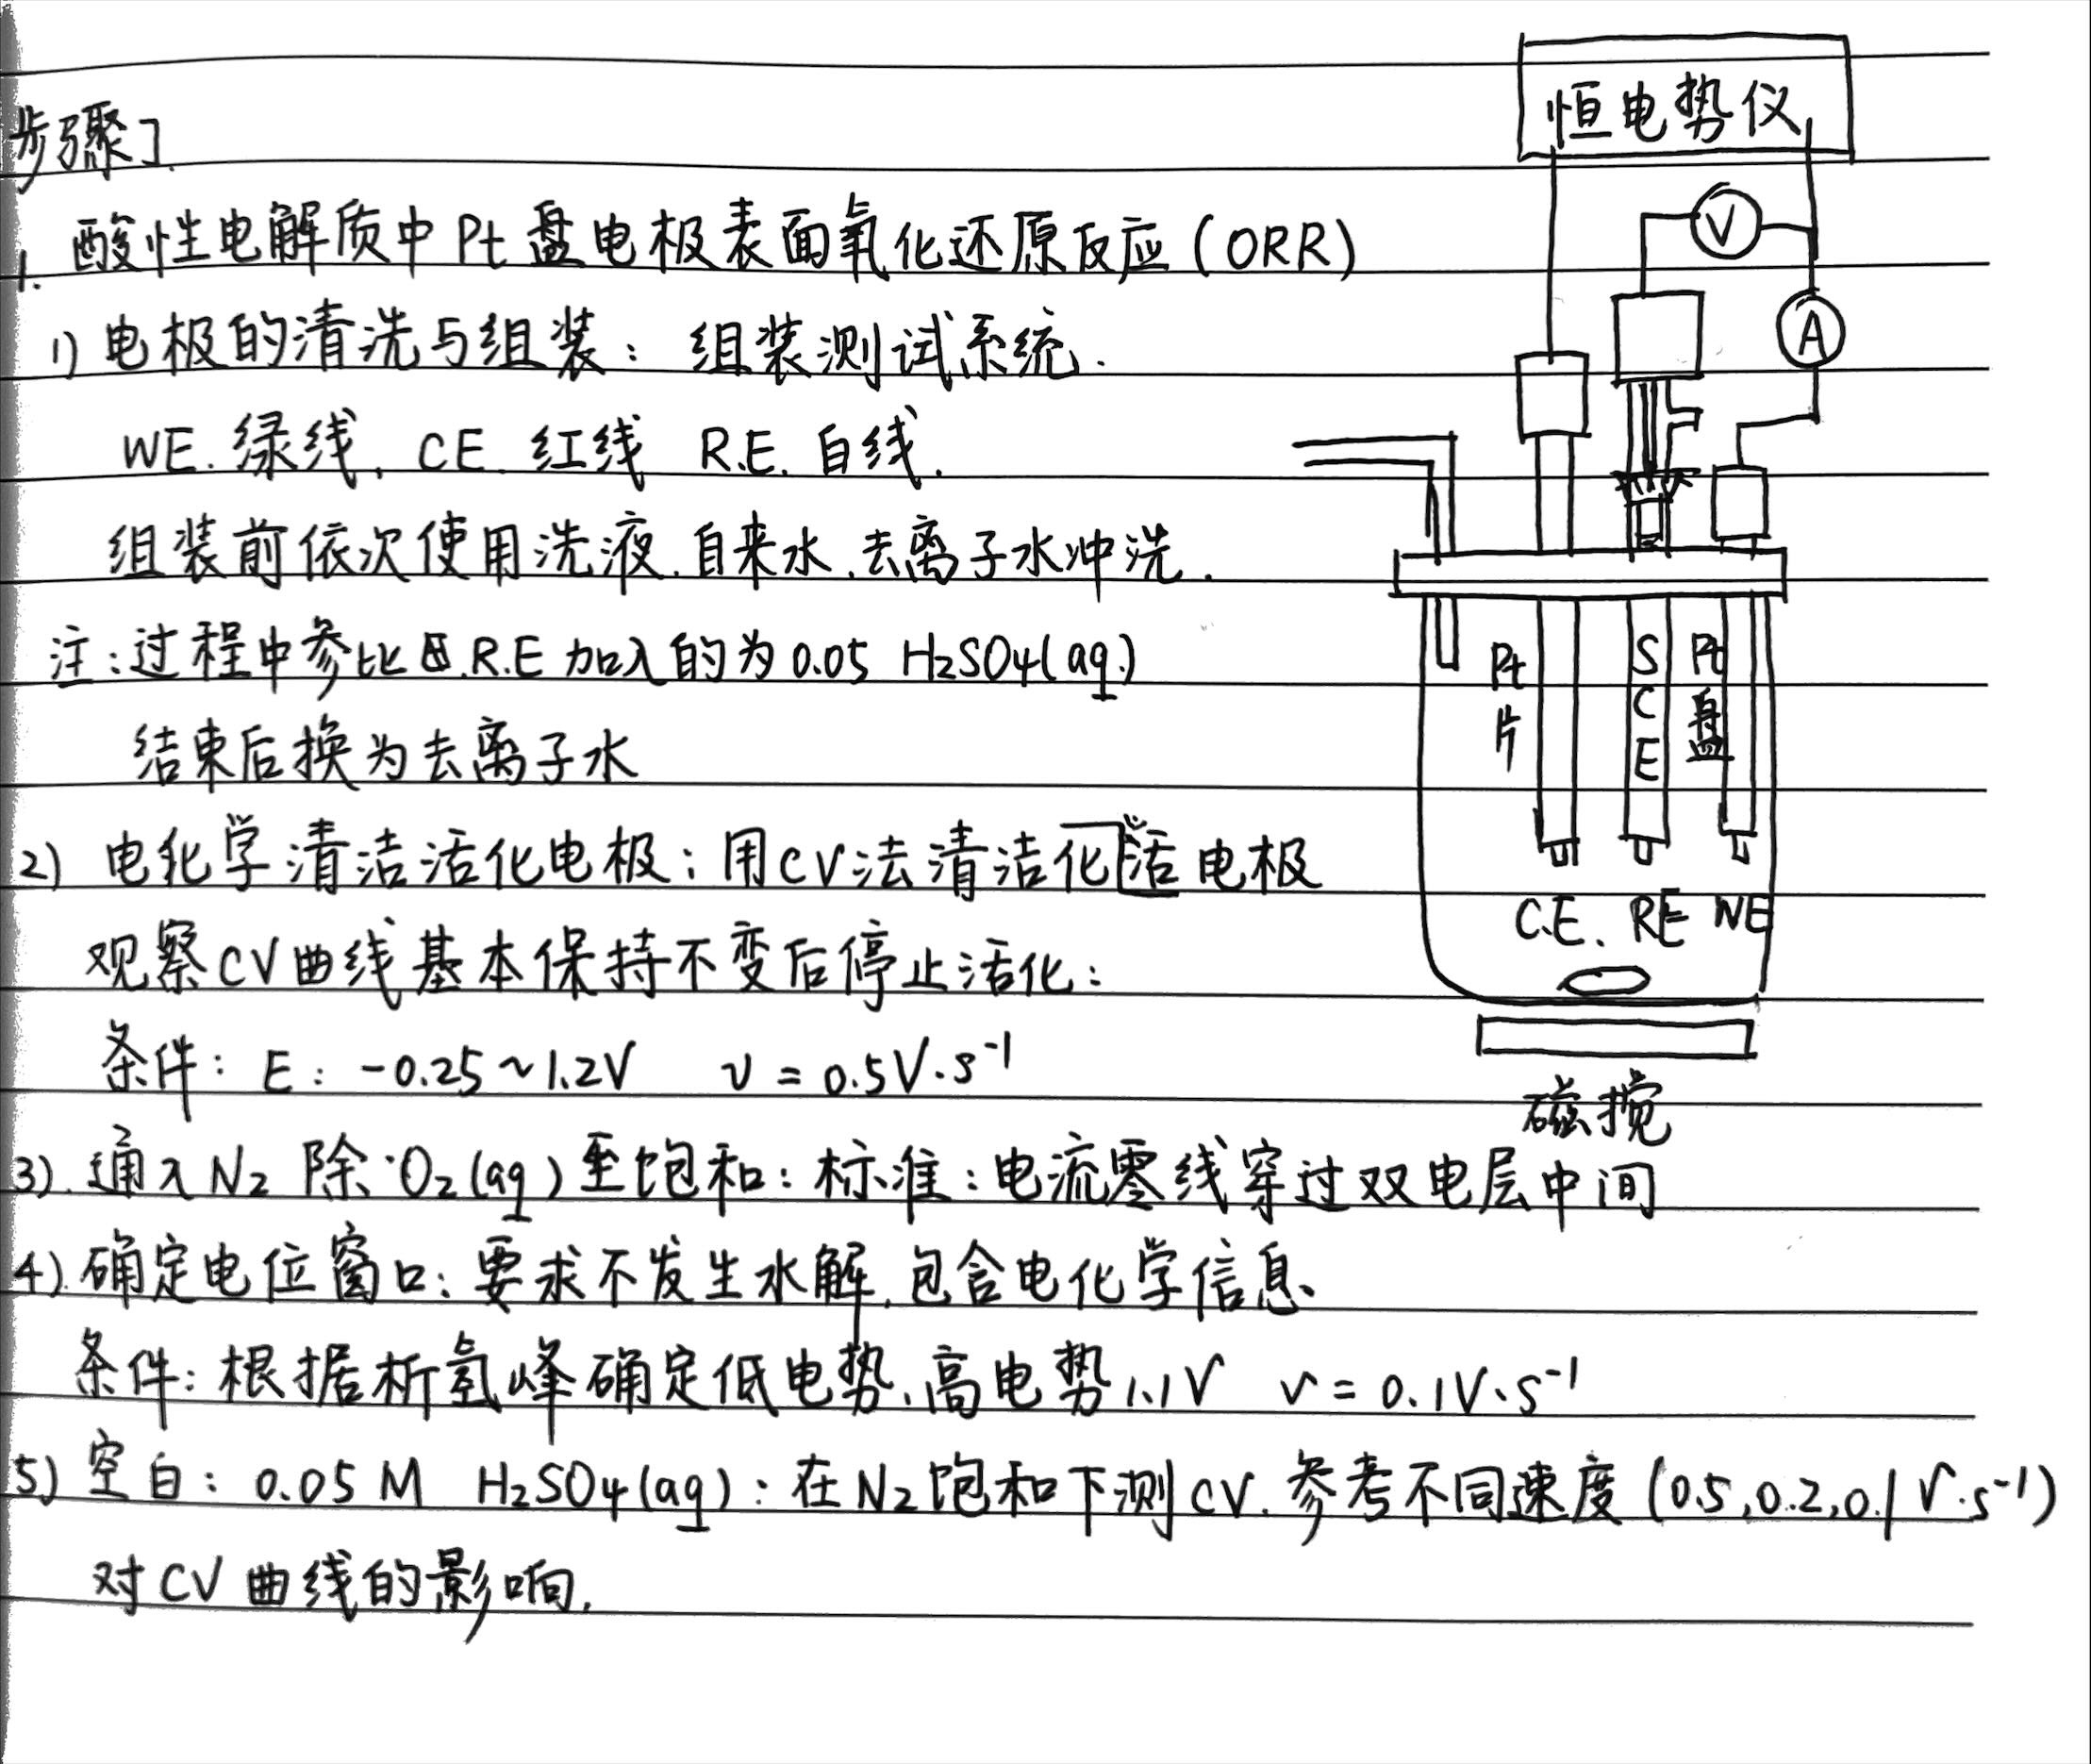 步骤]
1. 酸性电解质中Pt盘电极表面氧化还原反应(ORR)
1) 电极的清洗与组装: 组装测试系统.
WE. 绿线, CE. 红线 R.E. 白线.
组装前依次使用洗液.自来水.去离子水冲洗.
注:过程中参比.R.E加入的为0.05 H₂SO₄(aq.)
结束后换为去离子水
2) 电化学清洁活化电极:用CV法清洁化活电极
观察CV曲线基本保持不变后停止活化:
条件: E: -0.25~1.2V ν = 0.5V·s⁻¹
3). 通入N₂ 除·O₂(aq)至饱和:标准:电流零线穿过双电层中间
4). 确定电位窗口:要求不发生水解,包含电化学信息、
条件:根据析氢峰确定低电势、高电势1.1V ν = 0.1V·s⁻¹
5) 空白: 0.05 M H₂SO₄(aq):在N₂饱和下测CV.参考不同速度(0.5,0.2,0.1 V·s⁻¹)
对CV曲线的影响.
恒电势仪
V
A
Pt片
SCE
Pt盘
C.E. RE WE
磁搅